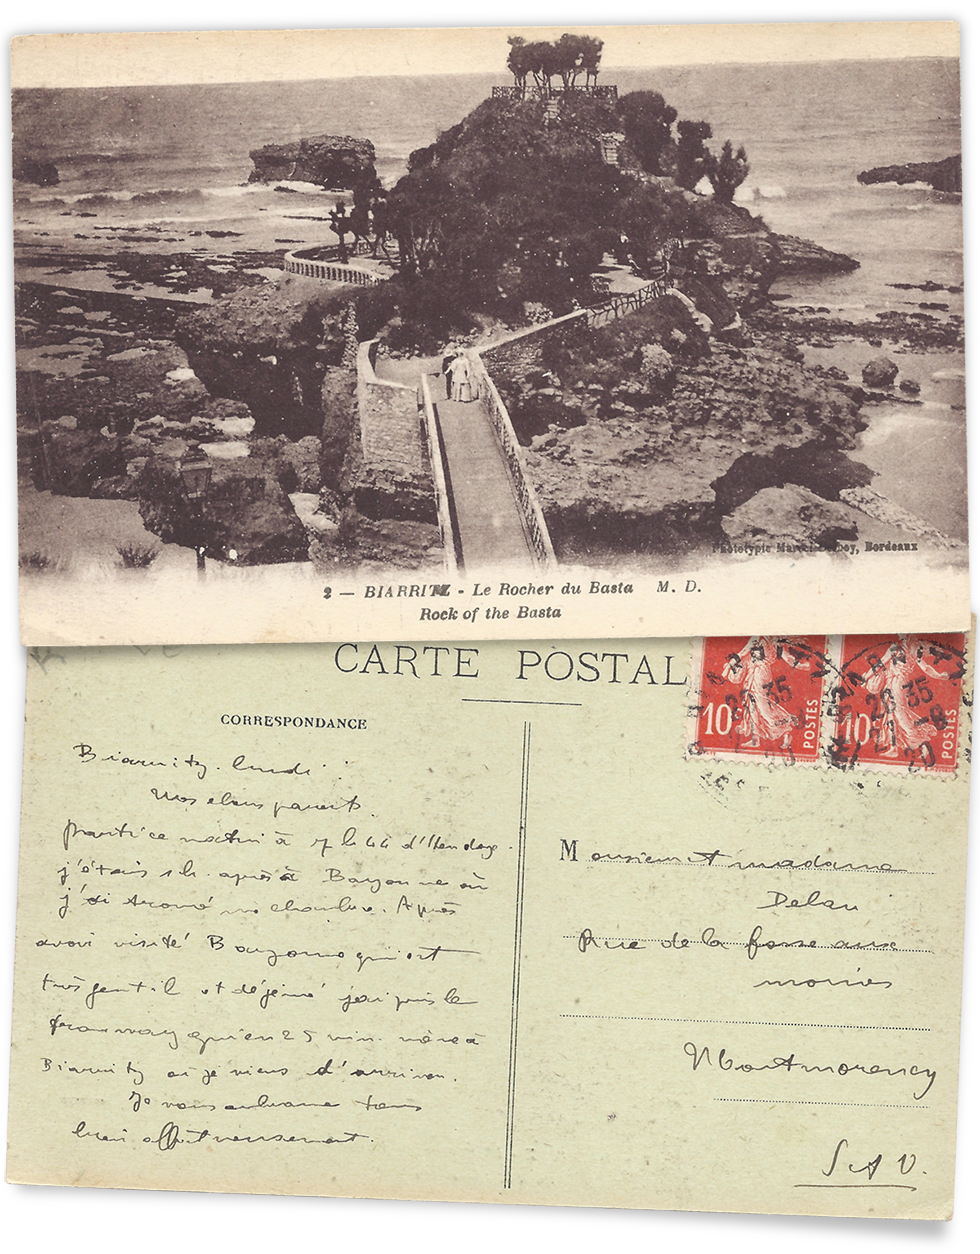 Phototypie Marcel Delboy, Bordeaux
2 — BIARRITZ - Le Rocher du Basta M. D.
Rock of the Basta
CARTE POSTAL
CORRESPONDANCE
10
POSTES
10
POSTES
BIARRITZ
26 35
BIARRITZ
26 35
21 -8
20
Biarritz. lundi
Mes chers parents.
partie ce matin à 7 h 44 d'Hendaye.
j'étais 1 h. après à Bayonne où
j'ai trouvé ma chambre. Après
avoir visité Bayonne qui est
très gentil et déjeuné j'ai pris le
tramway qui en 25 min. mène à
Biarritz où je viens d'arriver.
Je vous embrasse tous
bien affectueusement.
Monsieur et madame
Delau
Rue de la fosse aux
moines
Montmorency
S. et O.